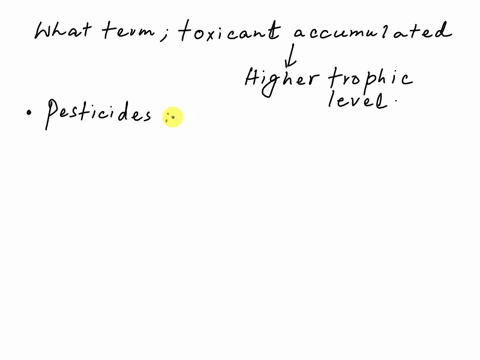 What term; toxicant accumulated
↓
Higher trophic
level.
• Pesticides :